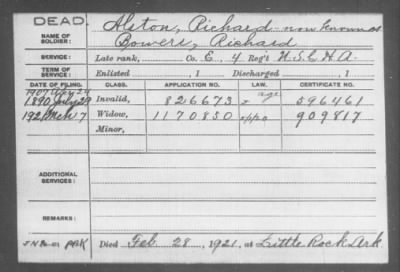 DEAD
NAME OF SOLDIER: Alston, Richard - now known as
Bowers, Richard
SERVICE: Late rank, Co. E, 4 Reg't U.S.C.H.A.
TERM OF SERVICE: Enlisted , 1 Discharged , 1
DATE OF FILING. CLASS. APPLICATION NO. LAW. CERTIFICATE NO.
1907 24 age
1890 July 29 Invalid, 826673 596461
1921 Mch 7 Widow, 1170850 909817
Minor,
ADDITIONAL SERVICES:
REMARKS:
Died Feb 28, 1921, at Little Rock Ark.